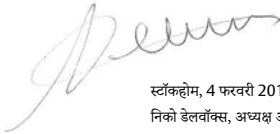 स्टॉकहोम, 4 फरवरी 201
निको डेलवॉक्स, अध्यक्ष